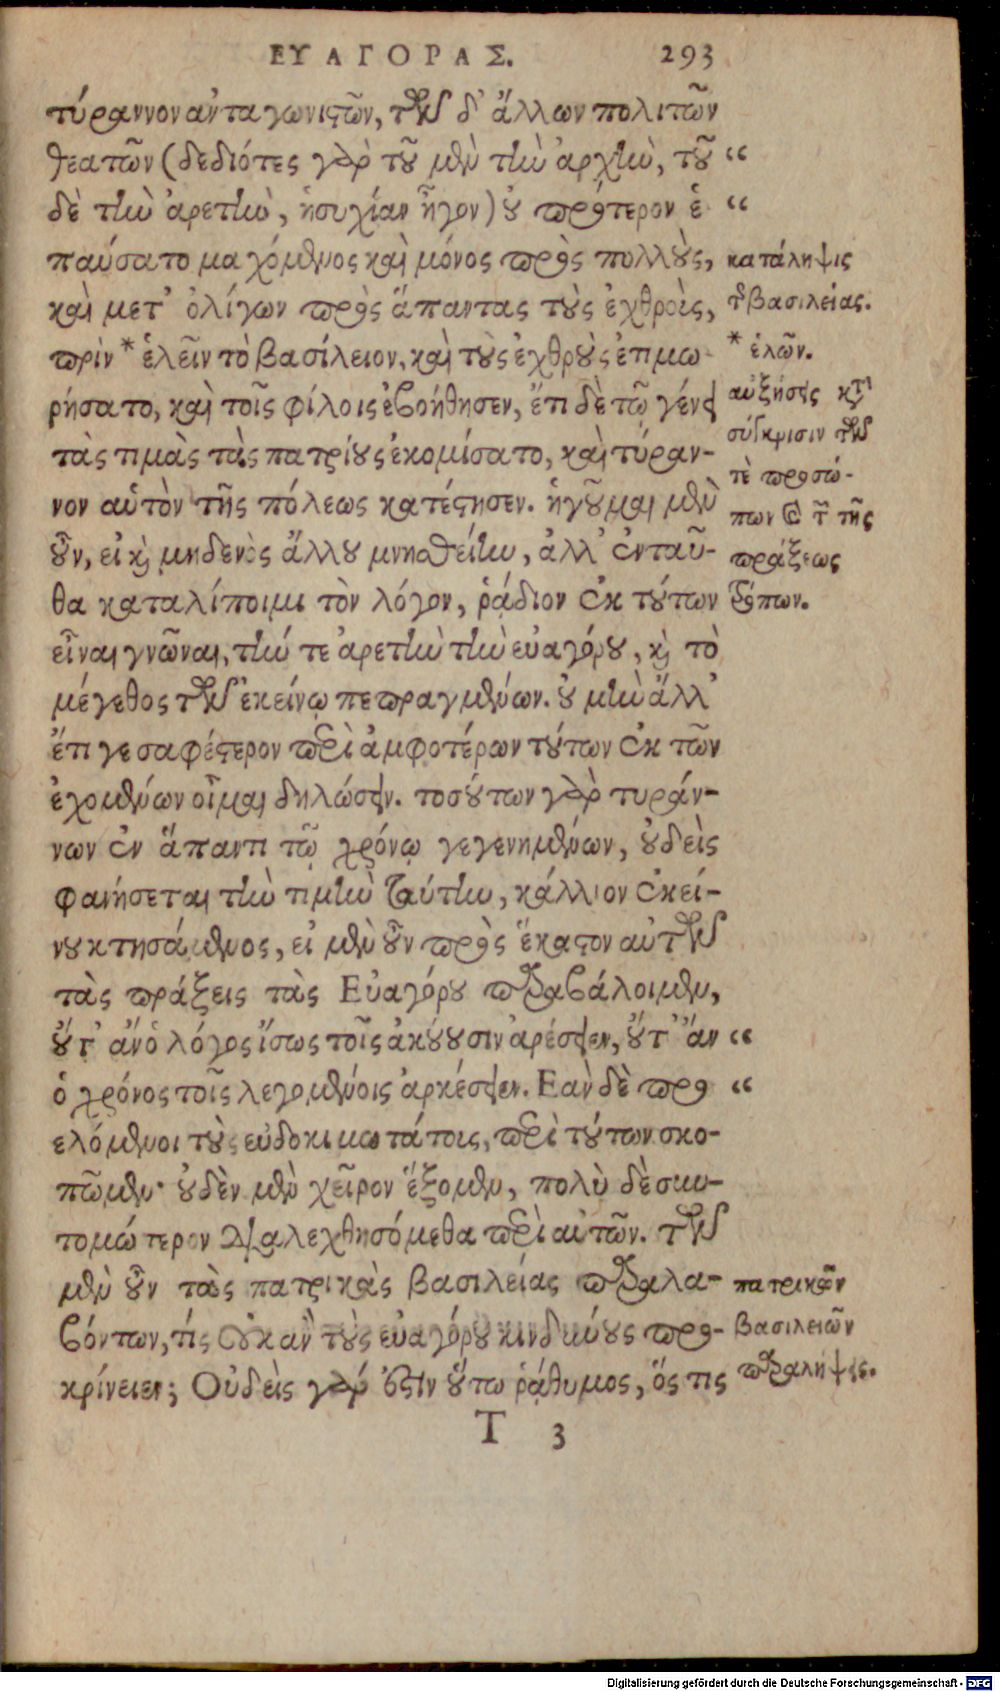 ΕΥΑΓΟΡΑΣ. 293
τύραννον ἀνταγωνιϛῶν, τῶν δ' ἄλλων πολιτῶν
θεατῶν (δεδιότες γὰρ τοῦ μὲν τὴν ἀρχὴν, τοῦ “
δὲ τὴν ἀρετὴν, ἡσυχίαν ἦγον) οὐ πρότερον ἐ “
παύσατο μαχόμενος καὶ μόνος πρὸς πολλοὺς,
καὶ μετ' ὀλίγων πρὸς ἅπαντας τοὺς ἐχθροὺς,
πρὶν * ἑλεῖν τὸ βασίλειον, καὶ τοὺς ἐχθροὺς ἐτιμω-
ρήσατο, καὶ τοῖς φίλοις ἐβοήθησεν, ἔτι δὲ τῷ γένει
τὰς τιμὰς τὰς πατρίους ἐκομίσατο, καὶ τύραν-
νον αὑτὸν τῆς πόλεως κατέϛησεν. ἡγοῦμαι μὲν
οὖν, εἰ καὶ μηδενὸς ἄλλου μνησθείην, ἀλλ' ἐνταῦ-
θα καταλίποιμι τὸν λόγον, ῥᾴδιον ἐκ τούτων
εἶναι γνῶναι, τήν τε ἀρετὴν τὴν εὐαγόρου, καὶ τὸ
μέγεθος τῶν ἐκείνῳ πεπραγμένων. οὐ μὴν ἀλλ'
ἔτι γε σαφέϛερον περὶ ἀμφοτέρων τούτων ἐκ τῶν
ἐχομένων οἶμαι δηλώσειν. τοσούτων γὰρ τυράν-
νων ἐν ἅπαντι τῷ χρόνῳ γεγενημένων, οὐδεὶς
φανήσεται τὴν τιμὴν ταύτην, κάλλιον ἐκεί-
νου κτησάμενος, εἰ μὲν οὖν πρὸς ἕκαϛον αὐτῶν
τὰς πράξεις τὰς Εὐαγόρου παραβάλοιμεν,
οὔτ' ἂν ὁ λόγος ἴσως τοῖς ἀκούουσιν ἀρέσειεν, οὔτ' ἂν “
ὁ χρόνος τοῖς λεγομένοις ἀρκέσειεν. Ἐὰν δὲ προ “
ελόμενοι τοὺς εὐδοκιμωτάτοις, περὶ τούτων σκο-
πῶμεν· οὐδὲν μὲν χεῖρον ἕξομεν, πολὺ δὲ συν-
τομώτερον διαλεχθησόμεθα περὶ αὐτῶν. τῶν
μὲν οὖν τὰς πατρικὰς βασιλείας παραλα-
βόντων, τίς οὐκ ἂν τοὺς εὐαγόρου κινδύνους προ-
κρίνειεν; Οὐδεὶς γάρ ἐϛιν οὕτω ῥᾴθυμος, ὅς τις
Τ 3
κατάληψις
τῆς βασιλείας.
* ἑλῶν.
αὐξήσεις κατὰ
σύγκρισιν τῶν
τὲ προσώ-
πων καὶ τ̃ τῆς
πράξεως
τρόπων.
πατρικῶν
βασιλειῶν
παραλήψεις.